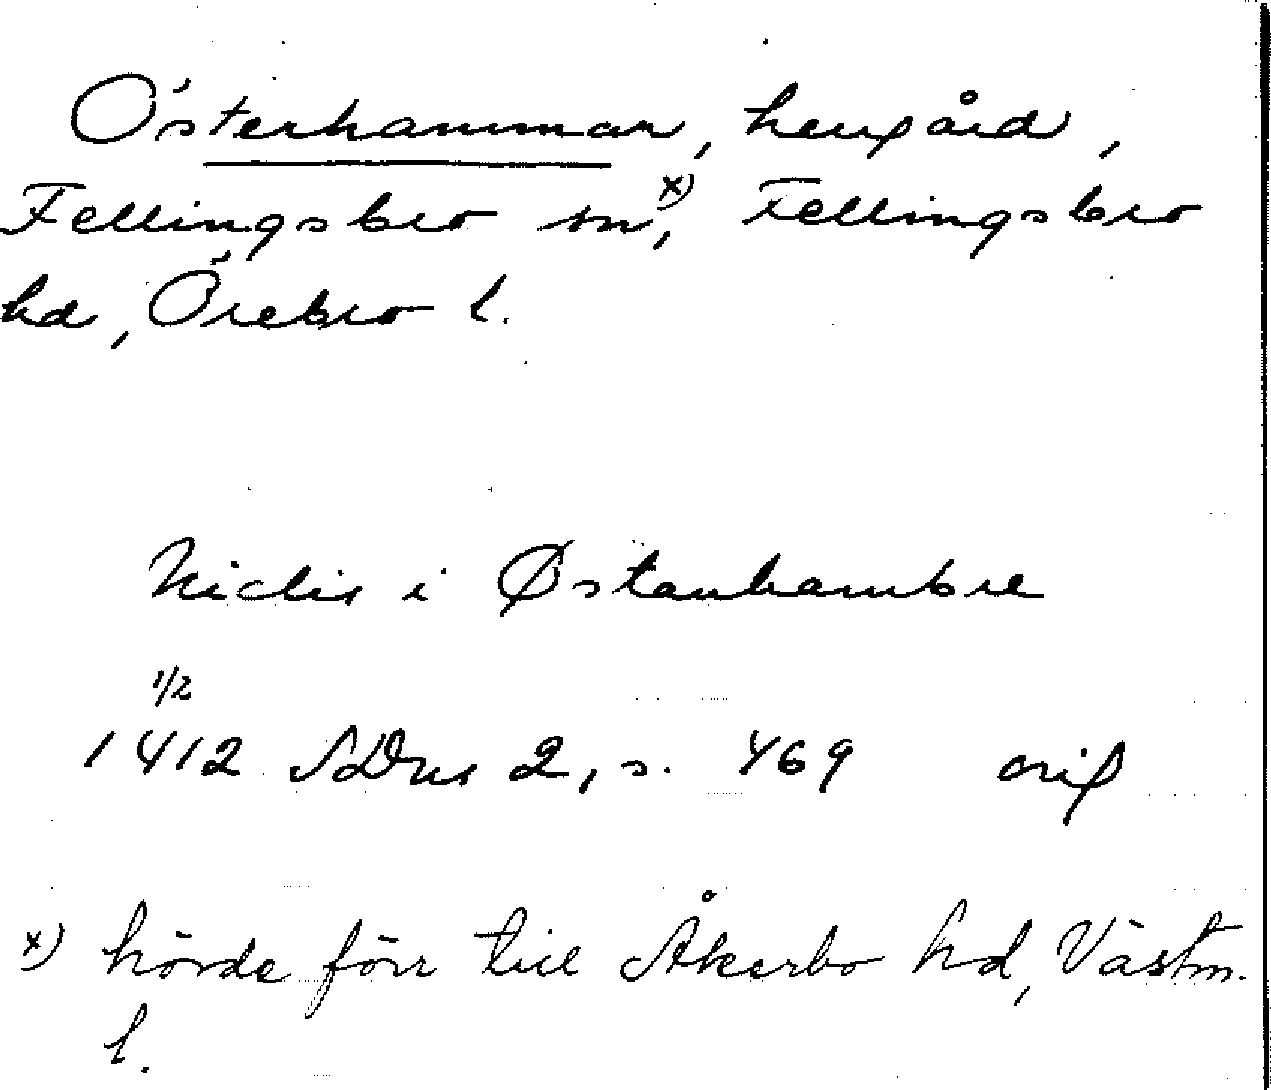 Österhammar, herrgård,
Fellingsbro sn,x) Fellingsbro
hd, Örebro l.
Niclis i Østanhambre
1/2
1412 SDns 2, s. 469 orig
x) hörde förr till Åkerbo hd, Västm.
l.